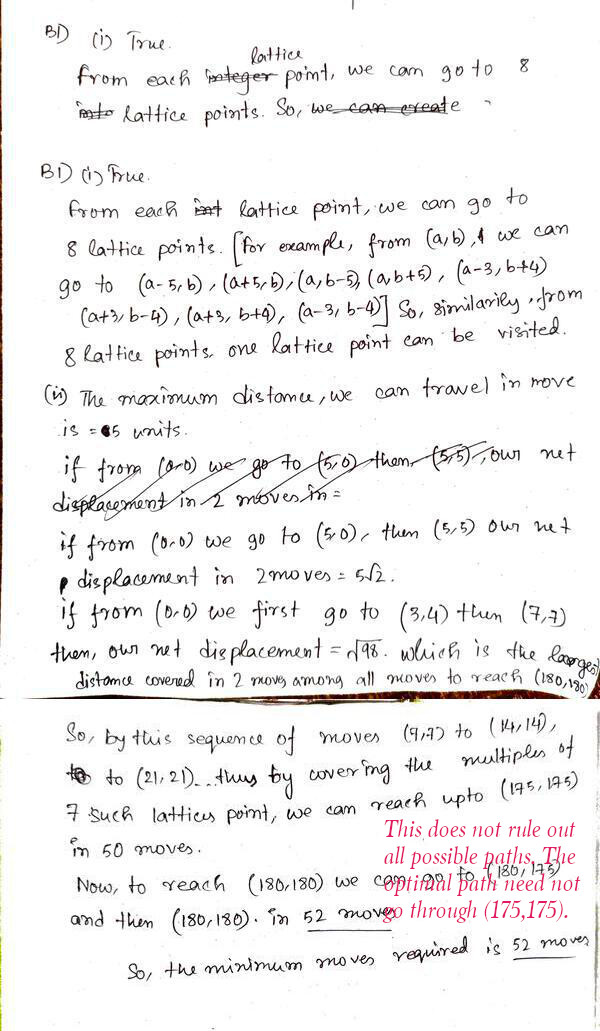 B1) (i) True.
From each integer lattice point, we can go to 8
into lattice points. So, we can create
B1) (i) True.
From each int lattice point, we can go to
8 lattice points. [For example, from (a,b), we can
go to (a-5,b), (a+5,b), (a,b-5), (a,b+5), (a-3,b+4)
(a+3,b-4), (a+3,b+4), (a-3,b-4)] So, similarily, from
8 lattice points one lattice point can be visited.
(ii) The maximum distance, we can travel in move
is = 5 units.
if from (0,0) we go to (5,0) then, (5,5), our net
displacement in 2 moves in =
if from (0,0) we go to (5,0), then (5,5) our net
displacement in 2 moves = 5√2.
if from (0,0) we first go to (3,4) then (7,7)
then, our net displacement = √98. which is the largest
distance covered in 2 moves among all moves to reach (180,180)
So, by this sequence of moves (7,7) to (14,14),
to (21,21)... thus by covering the multiples of
7 such lattices point, we can reach upto (175,175)
in 50 moves.
Now, to reach (180,180) we can go to (180,175)
and then (180,180). in 52 moves
So, the minimum moves required is 52 moves
This does not rule out
all possible paths. The
optimal path need not
go through (175,175).